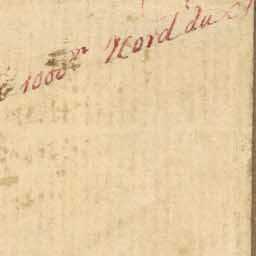 1000 m Nord du